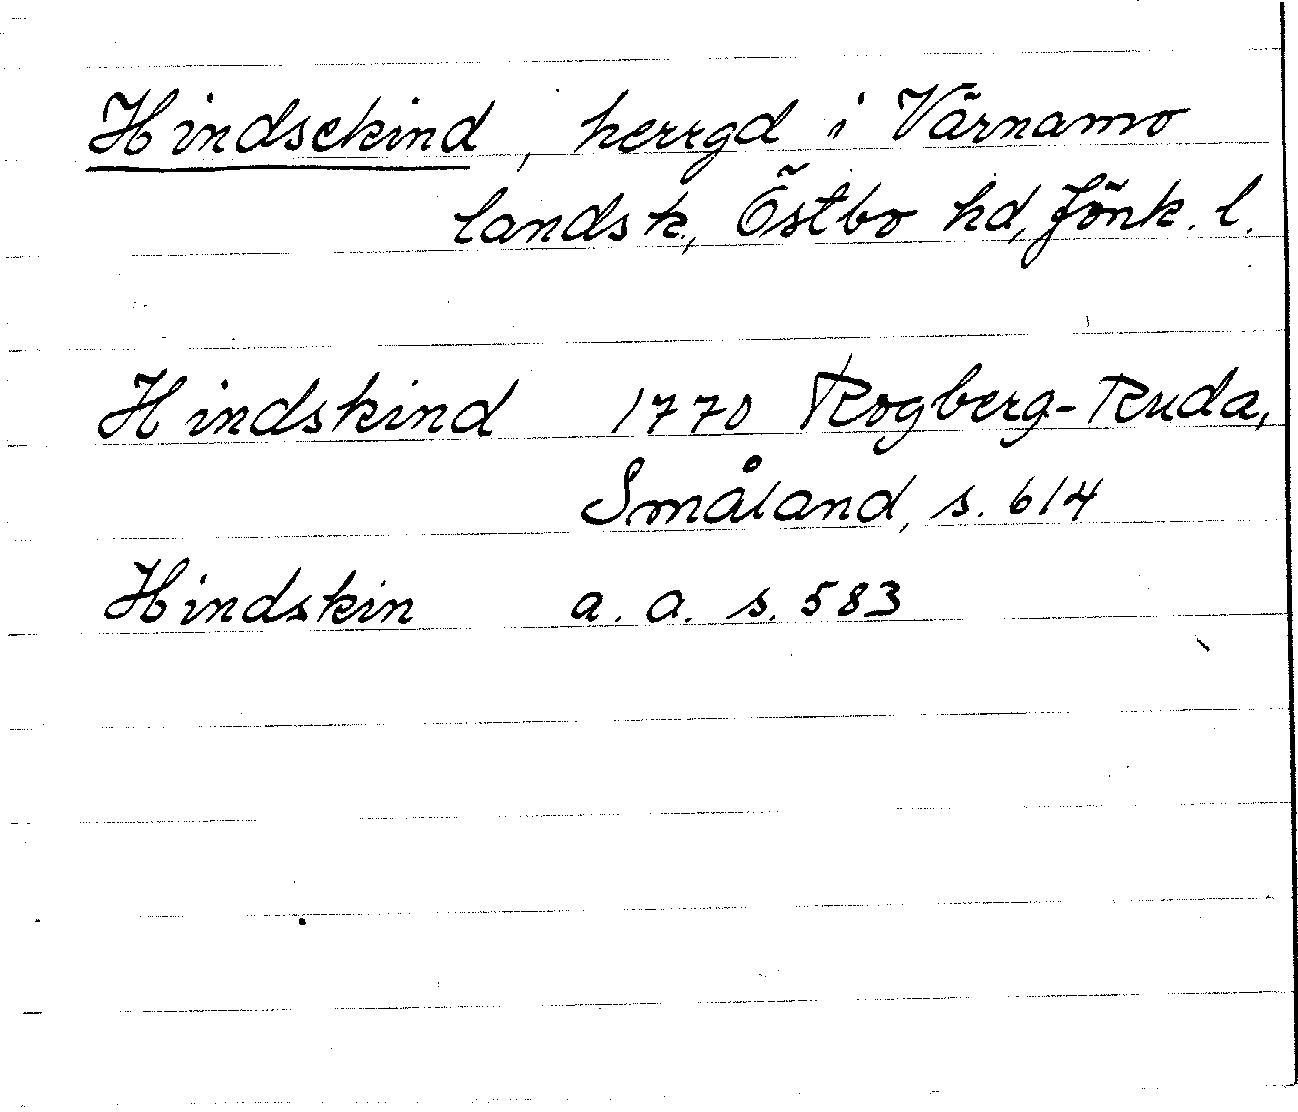 Hindsekind, herrgd i Värnamo
landsk, Östbo hd, Jönk. l.
Hindskind 1770 Rogberg-Ruda,
Småland, s. 614
Hindskin a. a. s. 583